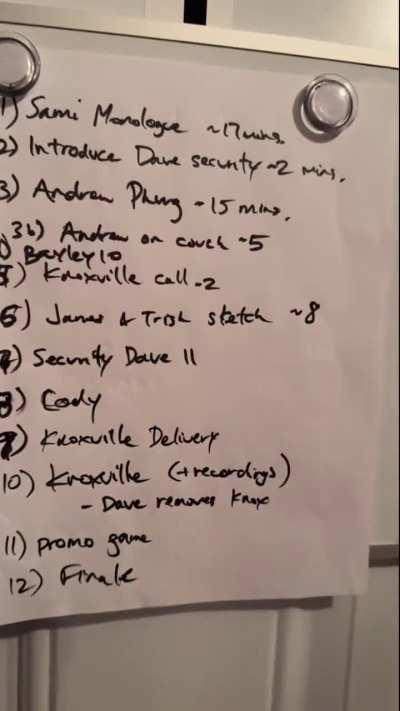 1) Sami Monologue ~17 mins.
2) Introduce Dave security ~2 mins.
3) Andrew Phung ~15 mins.
3b) Andrew on couch ~5
) Baxley 10
5) Knoxville call -2
6) James & Trish sketch ~8
7) Security Dave 11
8) Cody
9) Knoxville Delivery
10) Knoxville (+recordings)
- Dave removes Knox
11) promo game
12) Finale